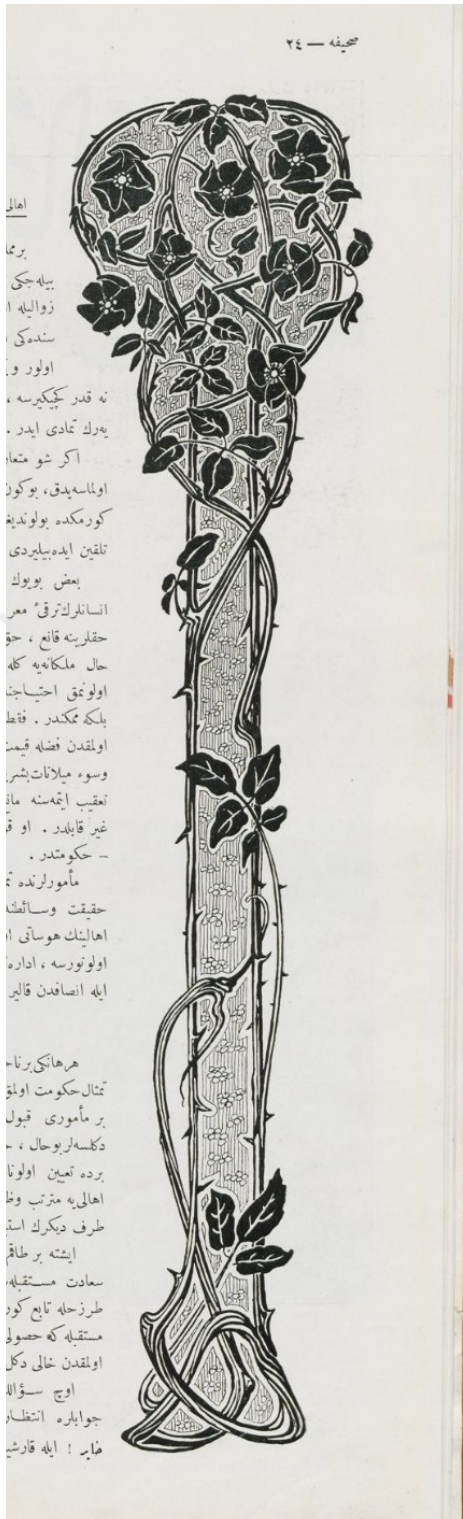 صحیفه — ٢٤
اهالی
بیله‌جکی
زوالیله
سنده‌کی
اولور و
نه قدر کچیکیرسه ،
یه‌رك تمادی ایدر .
اکر شو متعار
اولماسه‌یدق، بوکون
کورمکده بولوندیغ
تلقین ایده‌بیلیردی
بعض بویوك
انسانلرك ترقیٔ معر
حقلرینه قانع ، حق
حال ملکانه‌یه کله
اولونمق احتیاجند
بلکه ممکندر . فقط
اولمقدن فضله قیمت
وسوء میلانات بشر
تعقیب ایتمه‌سنه مان
غیر قابلدر . او قو
– حکومتدر .
مأمورلرنده
حقیقت وسائطنه
اهالینك هوساتی
اولونورسه ، اداره
ایله انصافدن قالیر
هرهانکی برناح
تمثال حکومت اولمق
بر مأموری قبول
دکلسه‌لر بوحال ،
برده تعیین اولونا
اهالی‌یه مترتب وظ
طرف دیکرك استی
ایشته بر طاقم
سعادت مستقبله
طرزحله تابع کور
مستقبله که حصولی
اولمقدن خالی دکل
اوچ سؤالا
جوابلره انتظار
ایله قارشی